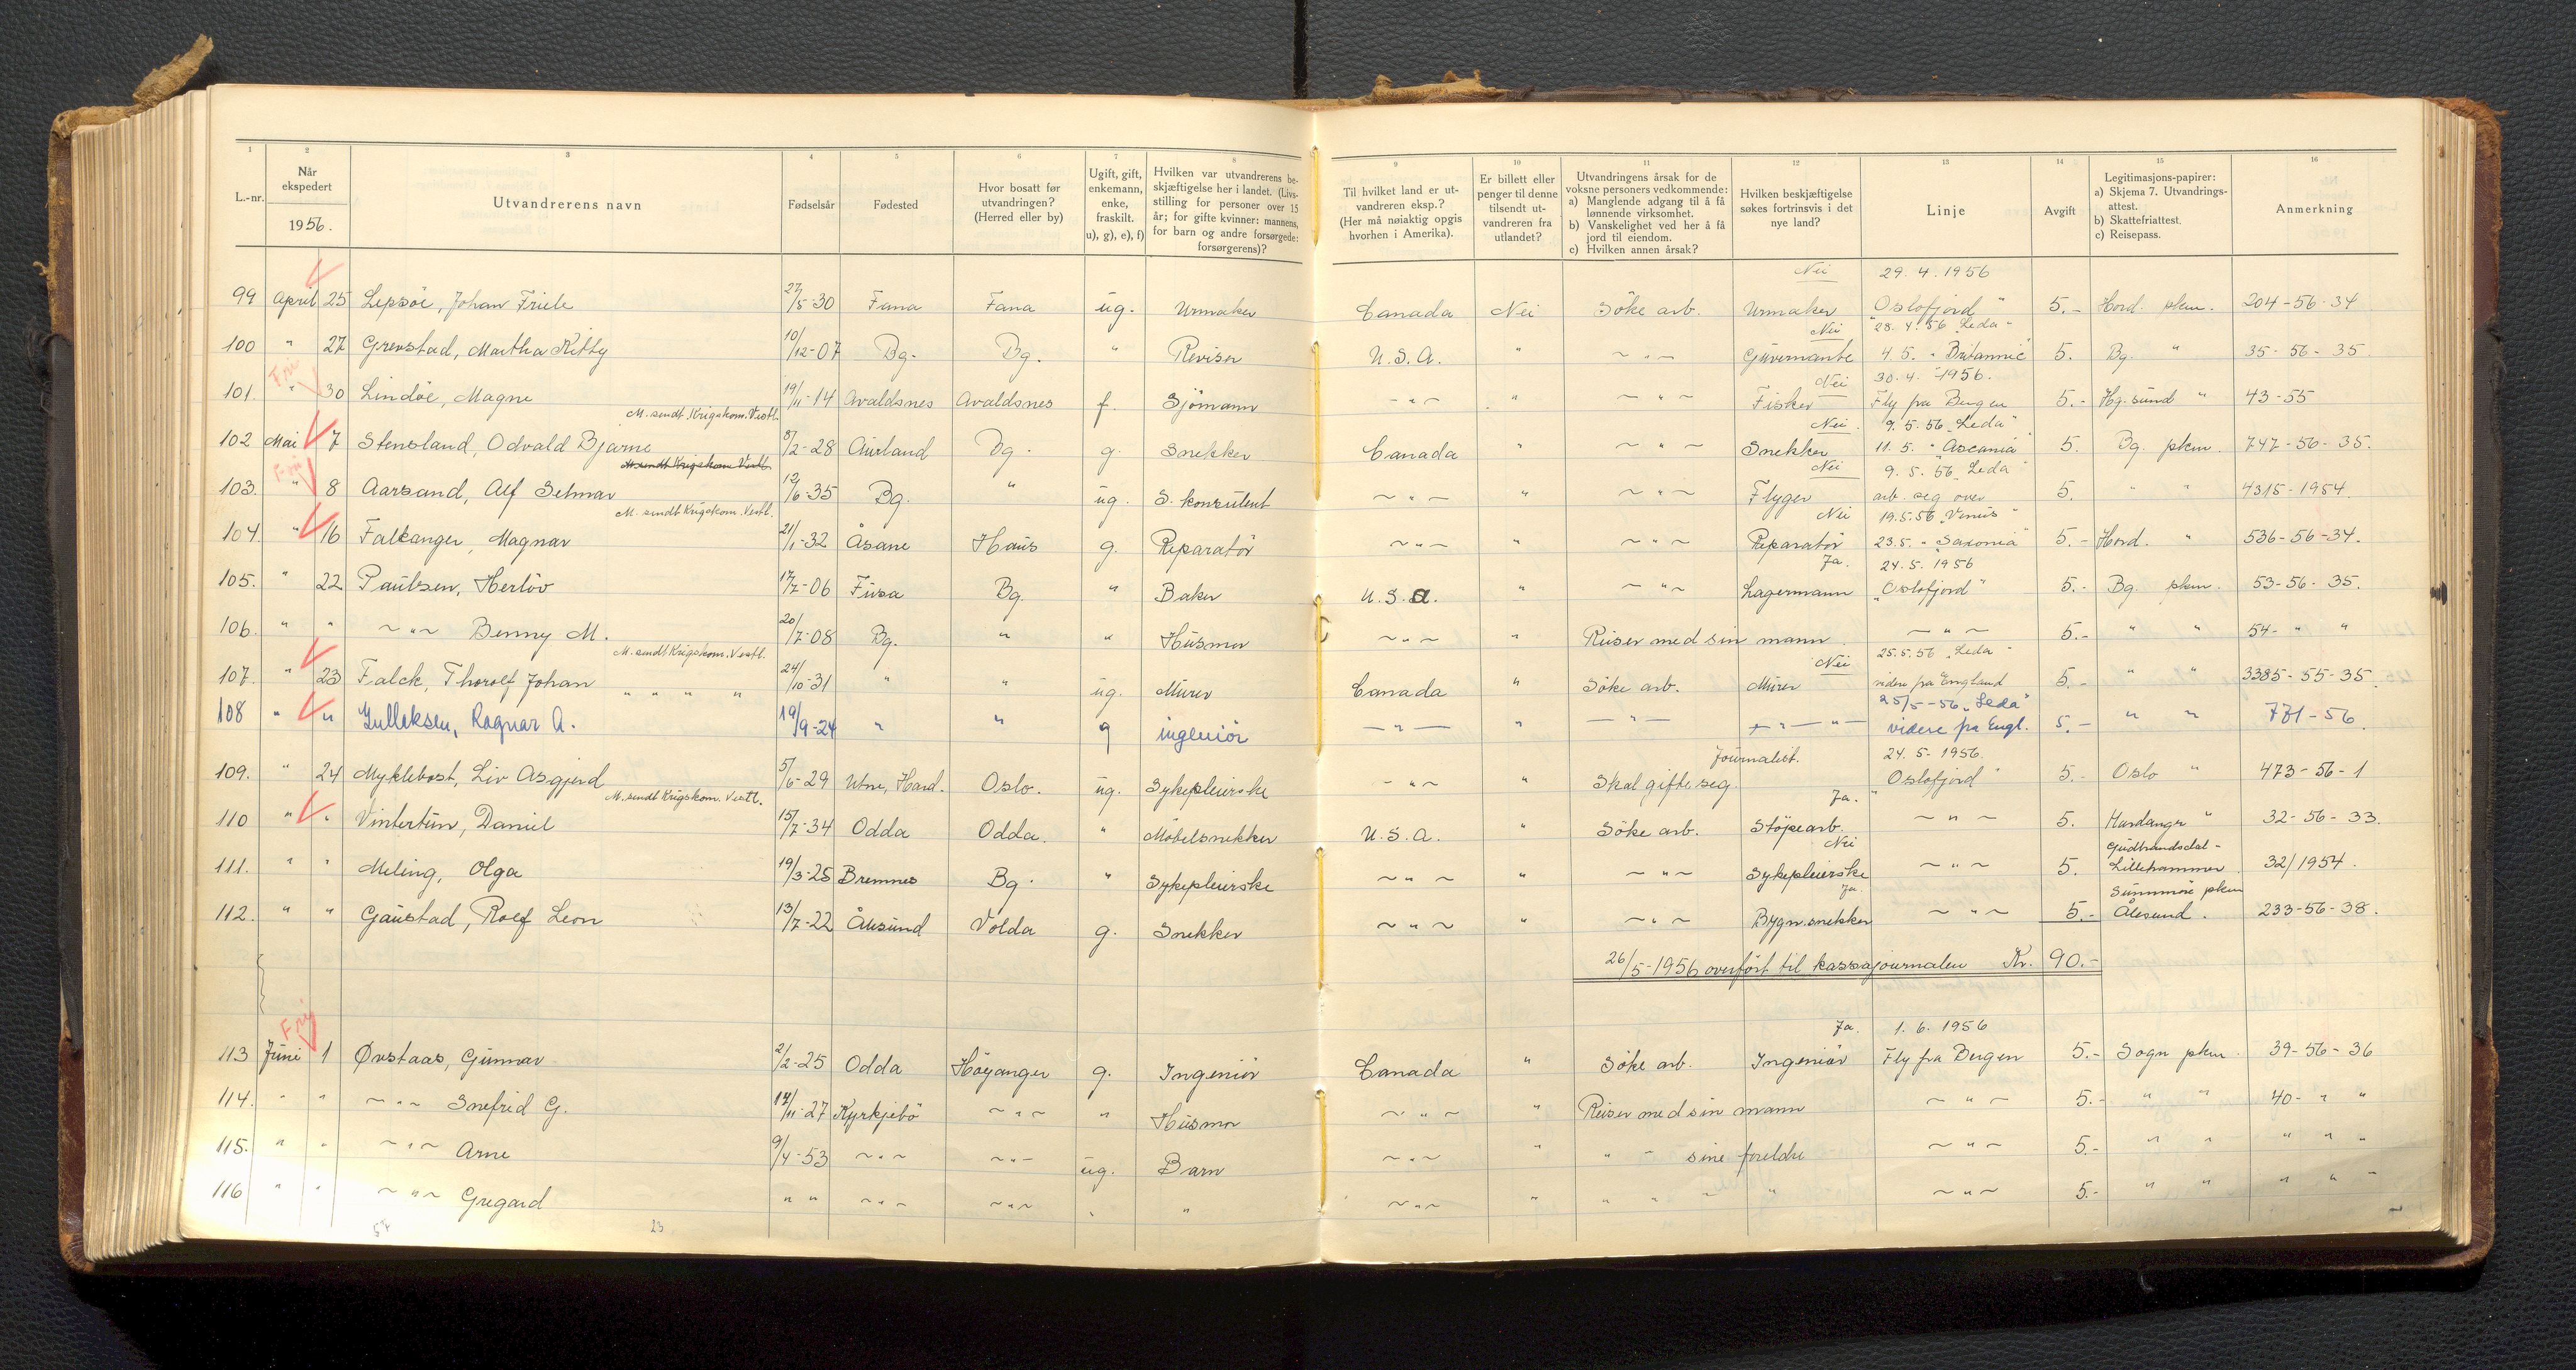 1 2 3 4 5 6 7 8 9 10 11 12 13 14 15 16
L.-nr.
Når ekspedert
1956.
Utvandrerens navn
Fødselsår
Fødested
Hvor bosatt før utvandringen? (Herred eller by)
Ugift, gift, enkemann, enke, fraskilt. u), g), e), f)
Hvilken var utvandrerens beskjæftigelse her i landet. (Livsstilling for personer over 15 år; for gifte kvinner: mannens, for barn og andre forsørgede: forsørgerens)?
Til hvilket land er utvandreren eksp.? (Her må nøiaktig opgis hvorhen i Amerika).
Er billett eller penger til denne tilsendt utvandreren fra utlandet?
Utvandringens årsak for de voksne personers vedkommende:
a) Manglende adgang til å få lønnende virksomhet.
b) Vanskelighet ved her å få jord til eiendom.
c) Hvilken annen årsak?
Hvilken beskjæftigelse søkes fortrinsvis i det nye land?
Linje
Avgift
Legitimasjons-papirer:
a) Skjema 7. Utvandringsattest.
b) Skattefriattest.
c) Reisepass.
Anmerkning
Nei 29.4.1956
99 April 25 Lepsöe, Johan Friele 27/5-30 Fana Fana ug. Urmaker Canada Nei Söke arb. Urmaker "Oslofjord" 5.- Hord. pkm. 204-56-34
Nei 28.4.56 "Leda"
100 " 27 Grevstad, Martha Kitty 10/12-07 Bg. Bg. " Revisor U.S.A. " ~ " ~ Guvernante 4.5. "Britannic" 5. Bg. " 35-56-35
Fri Nei 30.4.-1956.
101. " 30 Lindöe, Magne 19/11-14 Avaldsnes Avaldsnes f. Sjömann ~ " ~ " ~ " ~ Fisker Fly fra Bergen 5.- Hg.sund " 43-55
M. sendt Krigskom. Vestl. Nei. 9.5.56 "Leda"
102 Mai 7 Stensland, Odvald Bjarne 8/2-28 Aurland Bg. g. Snekker Canada " ~ " ~ Snekker 11.5. "Ascania" 5. Bg. pkm. 747-56-35.
Fri M. sendt Krigskom Vestl. Nei 9.5.56 "Leda"
103. " 8 Aarsand, Alf Selmar 12/6-35 Bg. " ug. S. konsulent ~ " ~ " ~ " ~ Flyger arb. seg over 5. " " 4315-1954.
M. sendt Krigskom. Vestl. Nei 19.5.56 "Venus"
104. " 16 Falkanger, Magnar 21/1-32 Åsane Haus g. Reparatör ~ " ~ " ~ " ~ Reparatör 23.5. "Saxonia" 5.- Hord. " 536-56-34.
Ja. 24.5.1956
105. " 22 Paulsen, Herlöv 17/7-06 Fusa Bg. " Baker U.S.A. " ~ " ~ Lagermann "Oslofjord" 5.- Bg. pkm. 53-56-35.
106. " " ~ " ~ Benny M. 20/7-08 Bg. " " Husmor ~ " ~ " Reiser med sin mann ~ " ~ 5.- " " 54- " "
M. sendt Krigskom. Vestl. Nei 25.5.56 "Leda"
107. " 23 Falck, Thorolf Johan 24/10-31 " " ug. Murer Canada " Söke arb. Murer videre fra England 5.- " " 3385-55-35
" " " " 25/5-56 "Leda"
108 " " Gulleksen, Ragnar A. 19/9-24 " " g ingeniör — " — " — " — — " — videre fra Engl. 5.- " " 771-56
Journalist. 24.5.1956
109. " 24 Myklebost, Liv Asgjerd 5/6-29 Utne, Hard. Oslo. ug. Sykepleierske ~ " ~ " Skal gifte seg "Oslofjord" 5.- Oslo " 473-56-1
M. sendt Krigskom. Vestl. Ja.
110 " " Vintertun, Daniel 15/7-34 Odda Odda. " Möbelsnekker U.S.A. " Söke arb. Stöpearb. ~ " ~ 5. Hardanger " 32-56-33.
Nei Gudbrandsdal-
111. " " Meling, Olga 19/3-25 Bremnes Bg. " Sykepleierske ~ " ~ " ~ " ~ Sykepleierske ~ " ~ 5. Lillehammer. 32/1954.
Ja. Sunnmöre pkm
112. " " Gaustad, Rolf Leon 13/7-22 Ålesund Volda g. Snekker ~ " ~ " ~ " ~ Bygn.snekker ~ " ~ 5.- Ålesund. 233-56-38.
26/5-1956 overfört til kassajournalen Kr. 90.-
Fri Ja. 1.6.1956
113 Juni 1 Ørstaas, Gunnar 2/2-25 Odda Höyanger g. Ingeniör Canada " Söke arb. Ingeniör Fly fra Bergen 5.- Sogn pkm. 39-56-36
114. " " ~ " ~ Snefrid G. 14/11-27 Kyrkjebö ~ " ~ " Husmor ~ " ~ " Reiser med sin mann ~ " ~ 5.- " " 40- " "
115. " " ~ " ~ Arne 9/4-53 ~ " ~ ~ " ~ ug. Barn ~ " ~ " " " sine foreldre ~ " ~ 5.- " " " " "
116 " " ~ " ~ Gregard " " ~ " ~ ~ " ~ " " ~ " ~ " " " " " ~ " ~ 5.- " " " " "
23